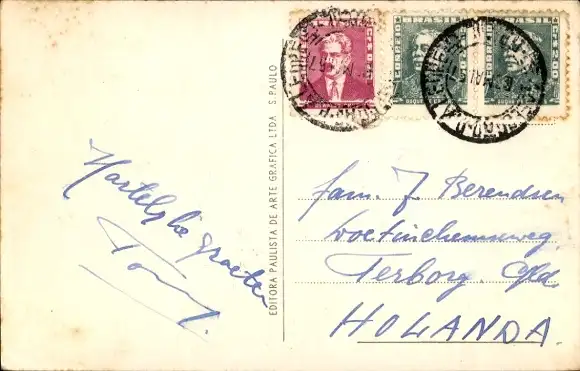 Hartelijke groeten
Tony.
EDITORA PAULISTA DE ARTE GRAFICA LTDA S. PAULO
BRASIL CORREIO
fam. J. Berendsen
Doetinchemseweg
Terborg. Gld.
HOLANDA.